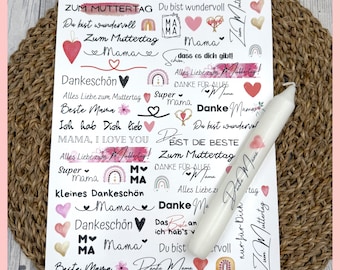 ZUM MUTTERTAG
Du bist wundervoll
Du bist wundervoll
MA
MA
Zum Muttertag
Mama
Zum Muttertag
Mama
dass es dich gibt!
Dankeschön
Alles Liebe zum Muttertag
Mama
Alles Liebe zum Muttertag
Super
Mama
Beste Mama
Danke Mama
Ich hab Dich lieb
Du bist wundervoll
MAMA, I LOVE YOU
BIST DIE BESTE
Alles Liebe zum Muttertag!
ZUM MUTTERTAG
Super
Mama
M
MA
DANKE FÜR ALLES
kleines Dankeschön
Danke Mama
Alles Liebe zum Muttertag
Dankeschön
Mama
nur für Dich
Zum Muttertag
M
MA
Mama
Du bist wundervoll
Beste Mama
Beste Mama